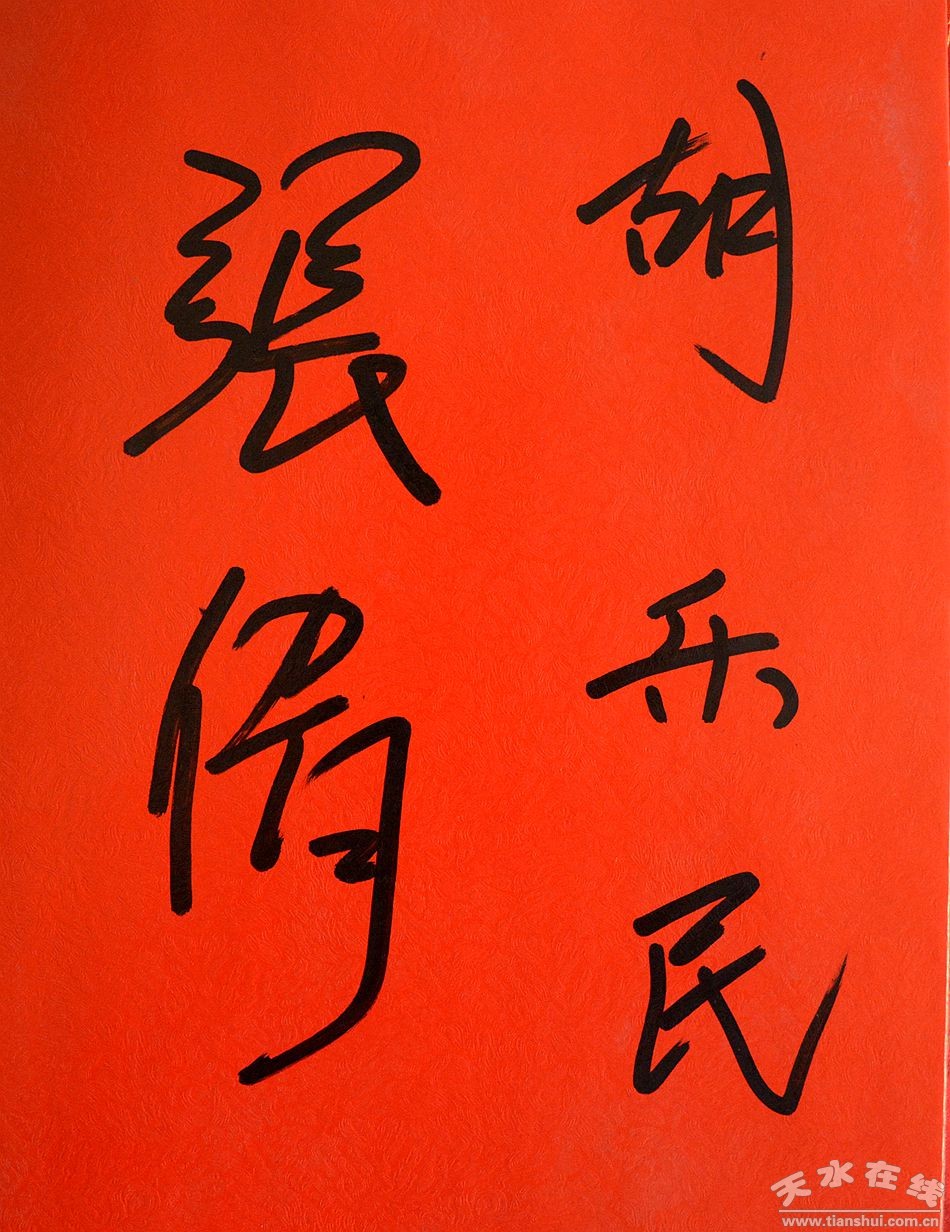 胡乐民
張
天水在线
www.tianshui.com.cn